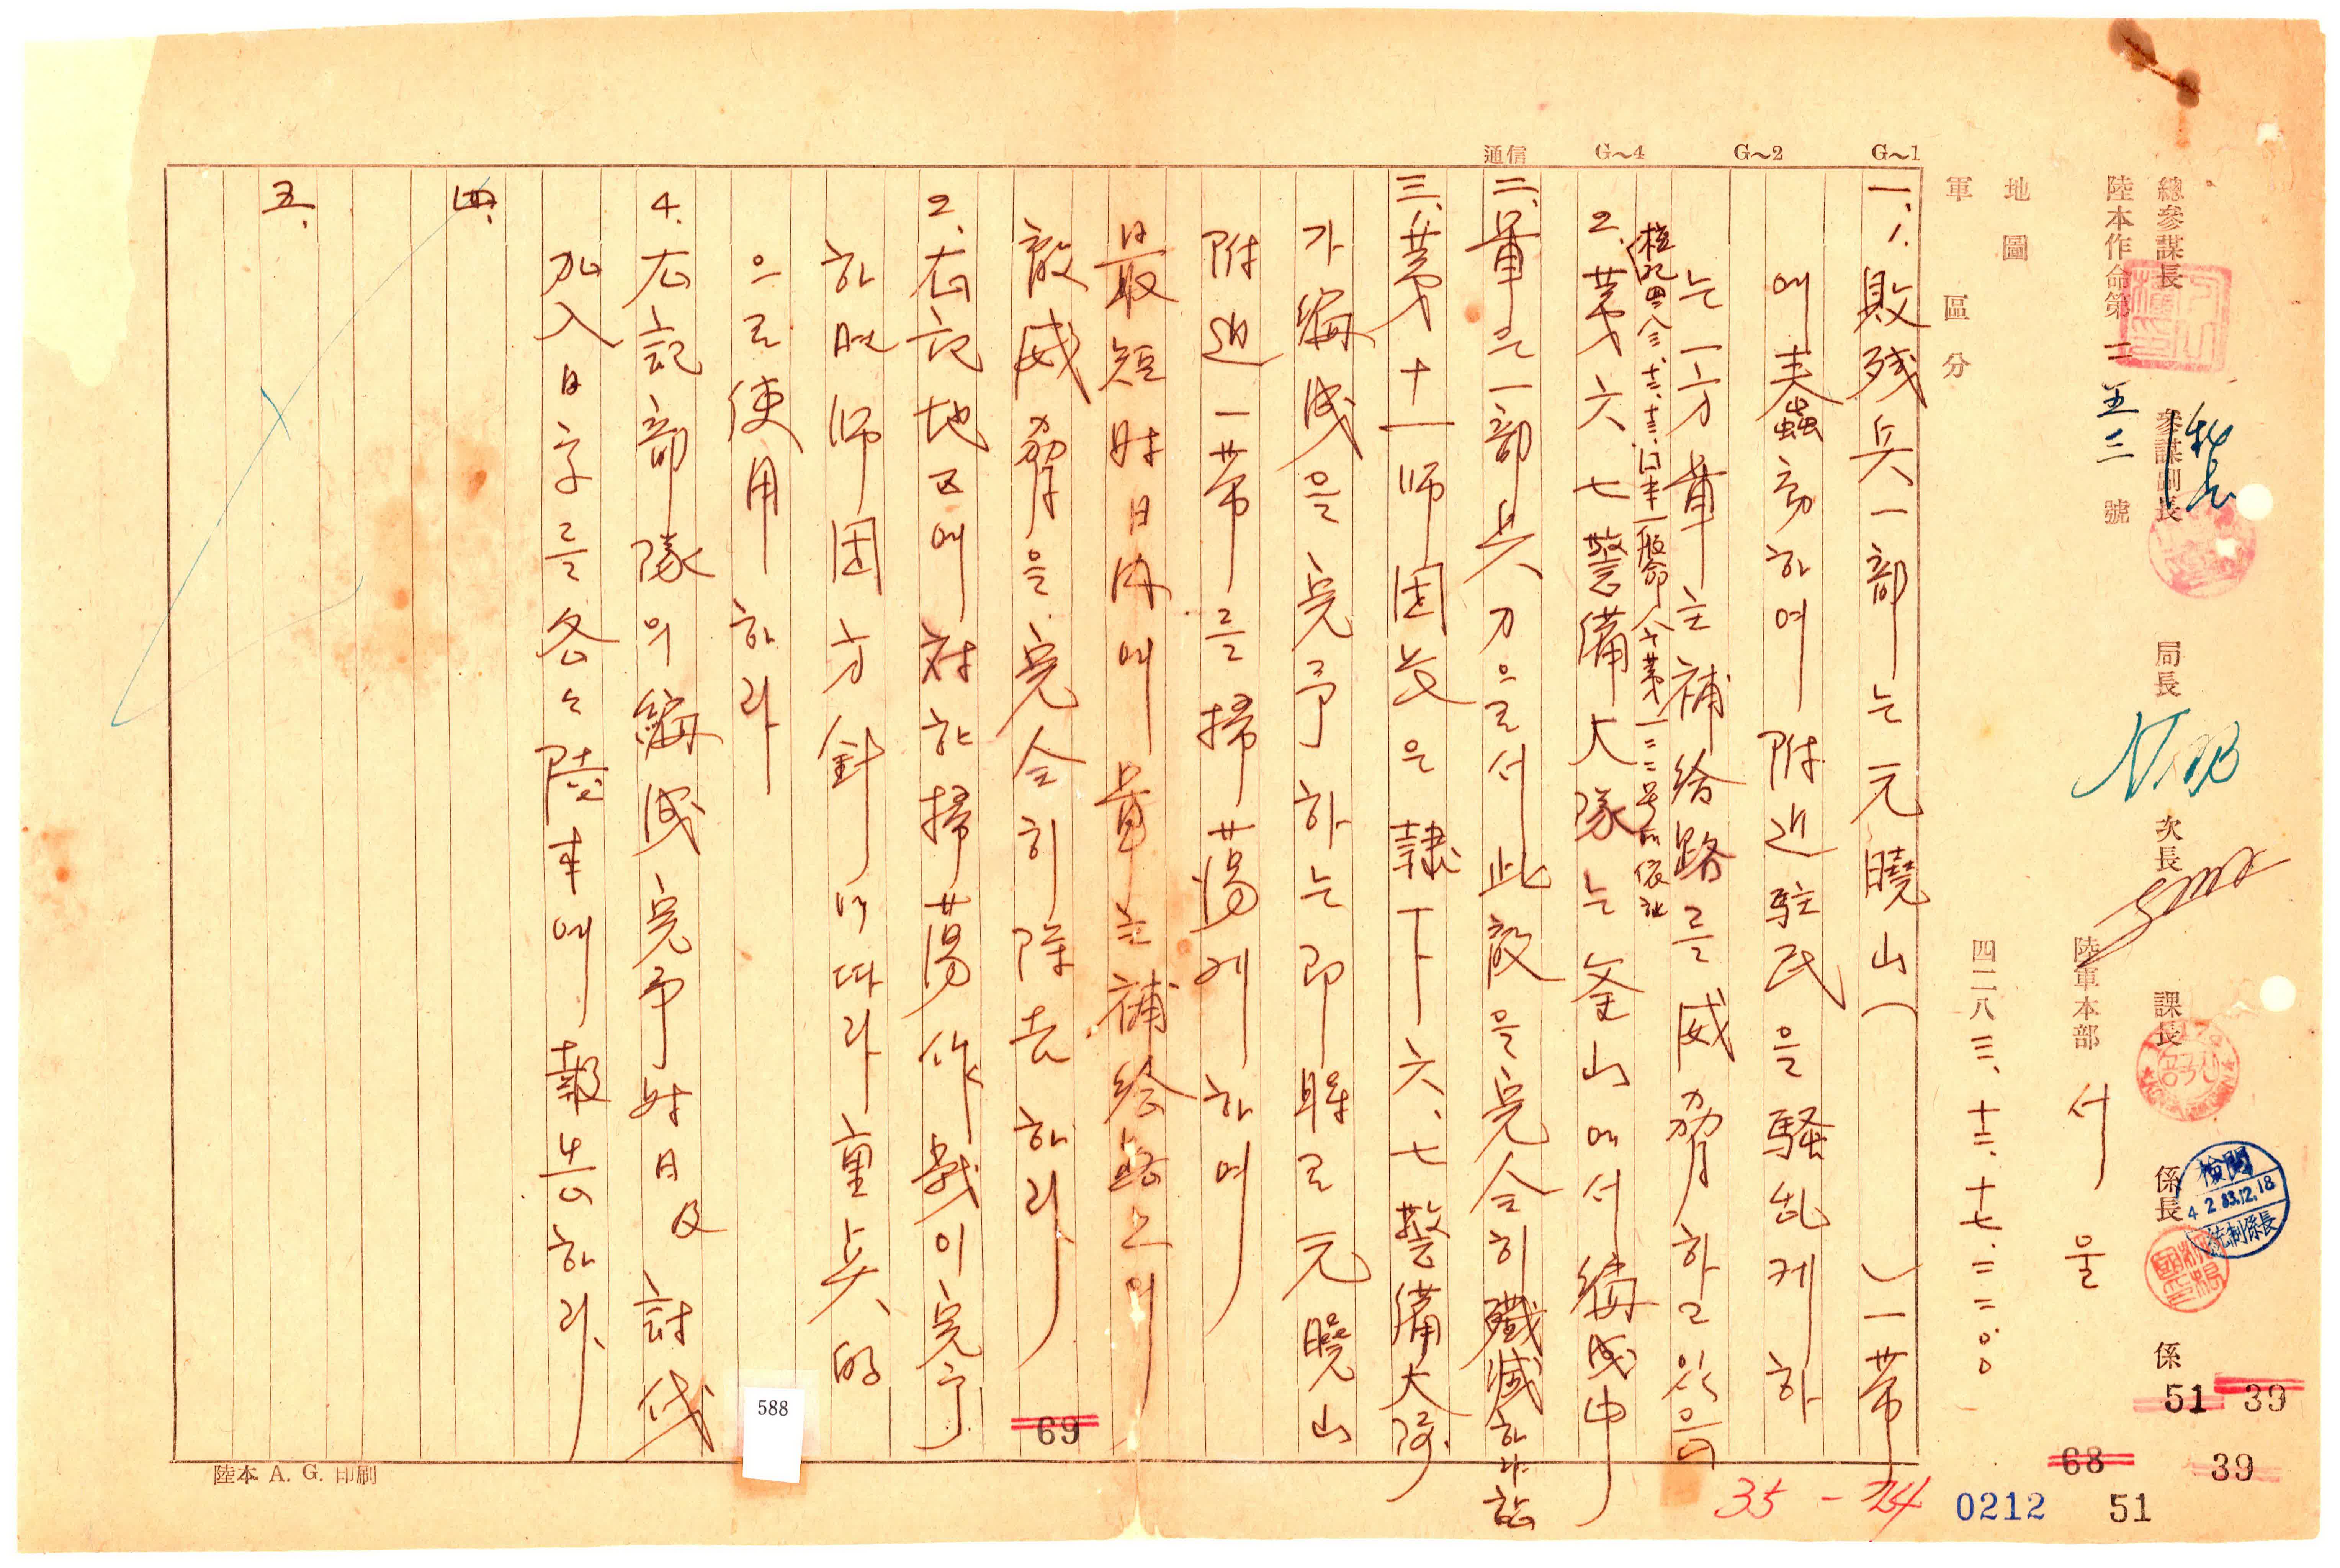 總參謀長 參謀副長 局長 次長 課長 係長 係
陸本作命第 二五二 號
陸軍本部 서울
四二八三.十二.十七.二二00
地圖
軍隊區分
G~1
G~2
G~4
通信
一、1. 敗残兵一部는元曉山( )一帶
에蠢動하여附近駐民을騷乱케하
는一方我軍主補給路를威脅하고있음
2. 第六七警備大隊는釜山에서編成中
二、軍은一部兵力으로서此敵을完全히殲滅하라함
三、1. 第十一師団長은隷下六、七警備大隊
가編成을完了하는即時로元曉山
附近一帶를掃蕩케하여
最短時日內에我軍主補給路上의
敵威脅을完全히除去하라
2. 右記地区에対한掃蕩作戦이完了
하면師団方針에따라重点的
으로使用하라
4. 右記部隊의編成完了時日及討伐
加入日字를各々陸本에報告하라.
四、
五、
陸本 A. G. 印刷
檢閱
4283.12.18
統制係長
588
69
51 39
68 39
35 - 24
0212 51